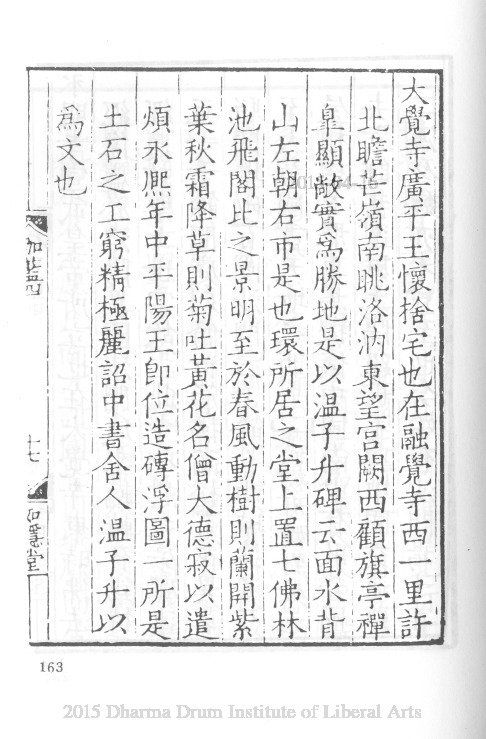 大覺寺廣平王懷捨宅也在融覺寺西一里許
北瞻芒嶺南眺洛汭東望宮闕西顧旗亭禪
皐顯敞實爲勝地是以温子升碑云面水背
山左朝右市是也環所居之堂上置七佛林
池飛閣比之景明至於春風動樹則蘭開紫
葉秋霜降草則菊吐黃花名僧大德寂以遣
煩永熈年中平陽王卽位造磚浮圖一所是
土石之工窮精極麗詔中書舍人温子升以
爲文也
加藍四
十七
如隱堂
163
2015 Dharma Drum Institute of Liberal Arts